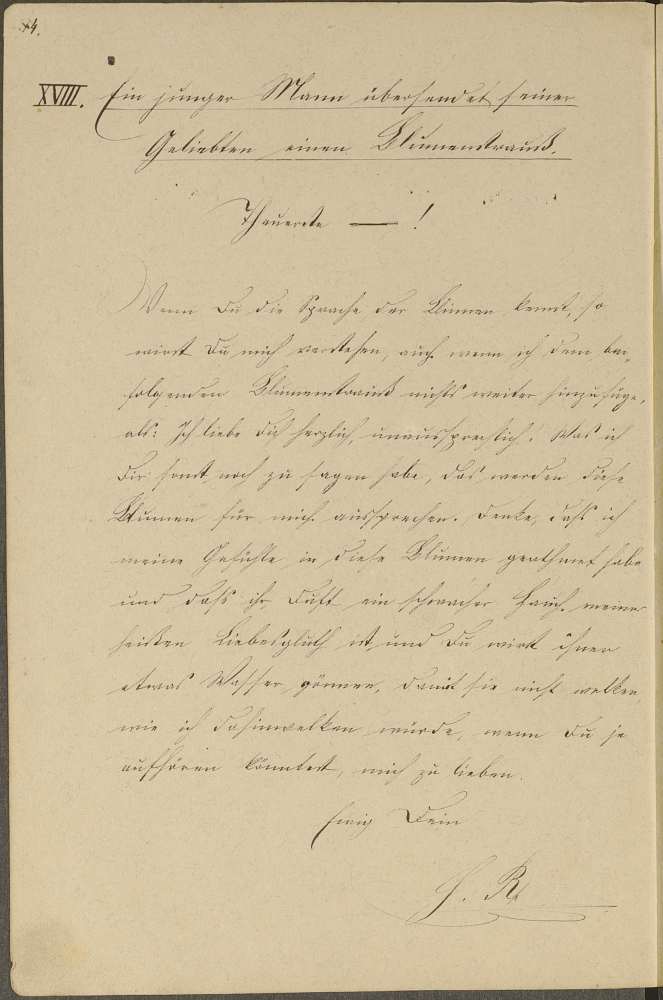 54.
XVIII. Ein junger Mann übersendet seiner
Geliebten einen Blumenstrauß.
Theuerste — !
Wenn Du die Sprache der Blumen kennst, so
wirst Du mich verstehen, auch wenn ich dem bei-
folgenden Blumenstrauß nichts weiter hinzufüge,
als: Ich liebe Dich herzlich, unaussprechlich! Was ich
Dir sonst noch zu sagen habe, das werden diese
Blumen für mich aussprechen. Denke, daß ich
meine Gefühle in diese Blumen geathmet habe
und daß ihr Duft ein schwacher Hauch meiner
heißen Liebesgluth ist, und Du wirst ihnen
etwas Wasser gönnen, damit sie nicht welken,
wie ich dahinwelken würde, wenn Du je
aufhören könntest, mich zu lieben.
Ewig Dein
H. R.